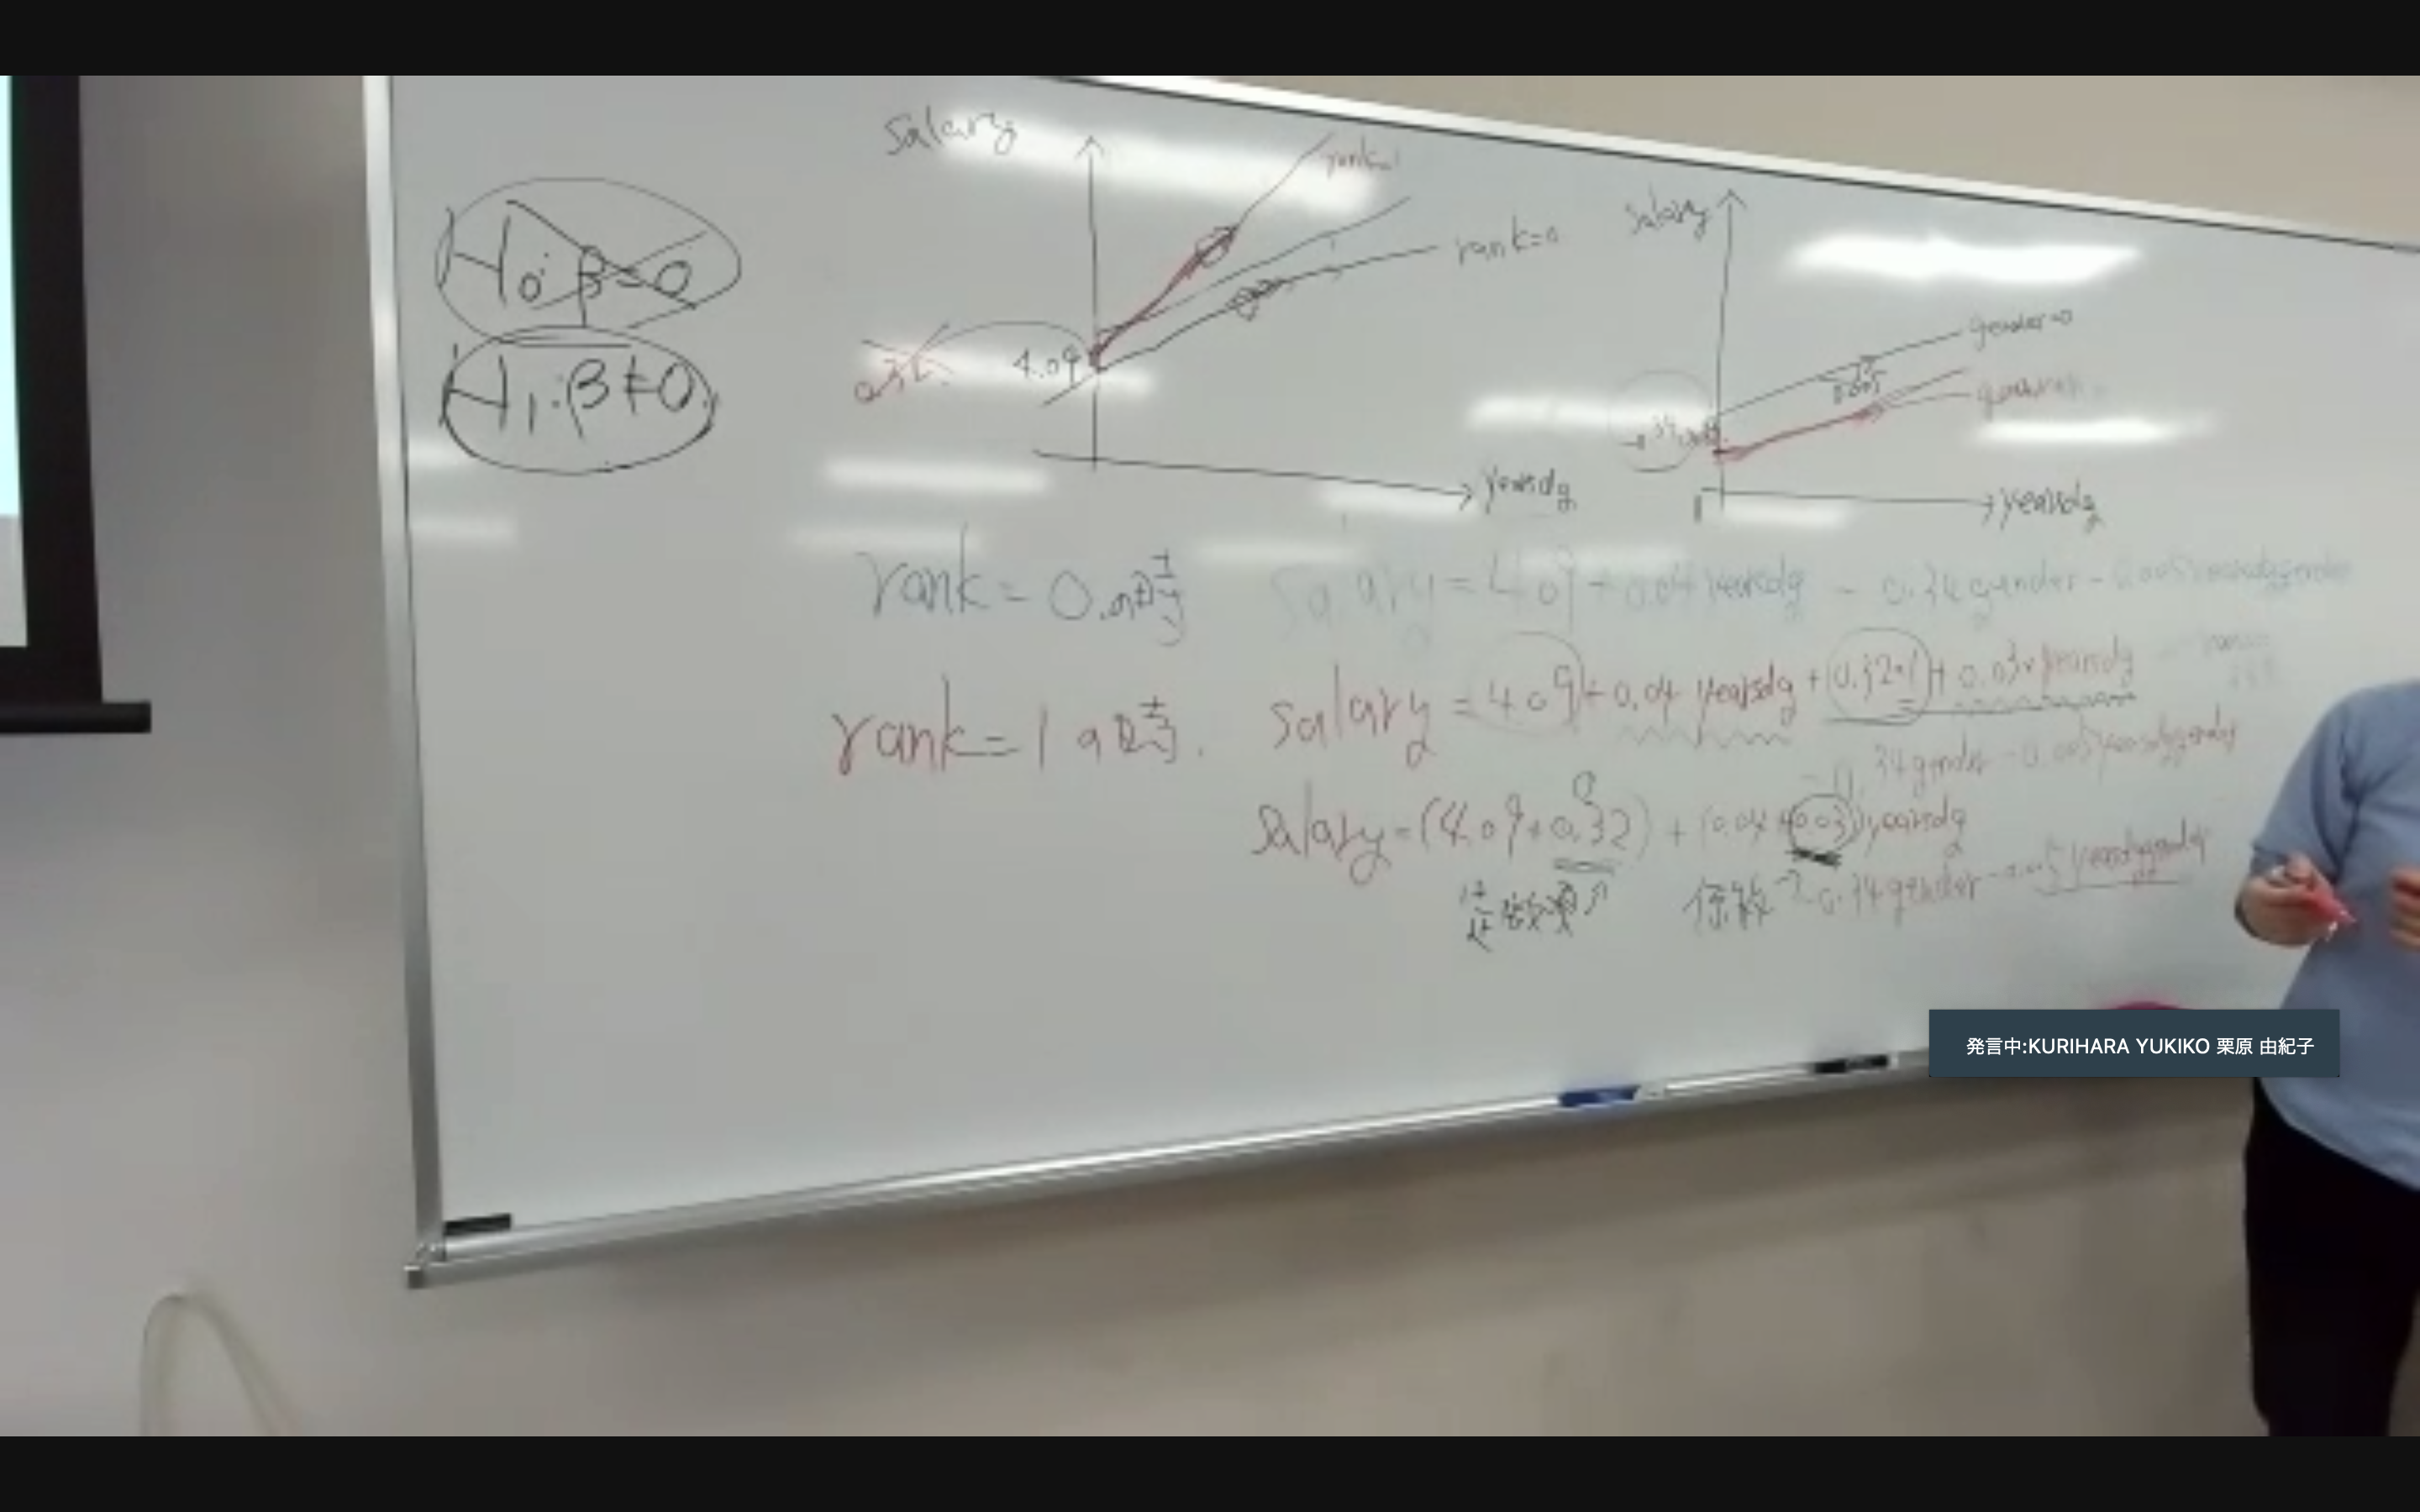 H₀: β=0
H₁: β≠0
salary
rank=1
rank=0
4.09
yearsdg
salary
gender=0
0.005
yearsdg
rank=0のとき
salary = 4.09 + 0.04 yearsdg - 0.34 gender - 0.005 yearsdg gender
rank=1のとき.
salary = 4.09 + 0.04 yearsdg + 0.32×1 + 0.03×yearsdg
34 gender - 0.005 yearsdg gender
salary = (4.09+0.32) + (0.04+0.03) yearsdg
定数項 係数 -0.34 gender - 0.005 yearsdg gender
発言中:KURIHARA YUKIKO 栗原 由紀子